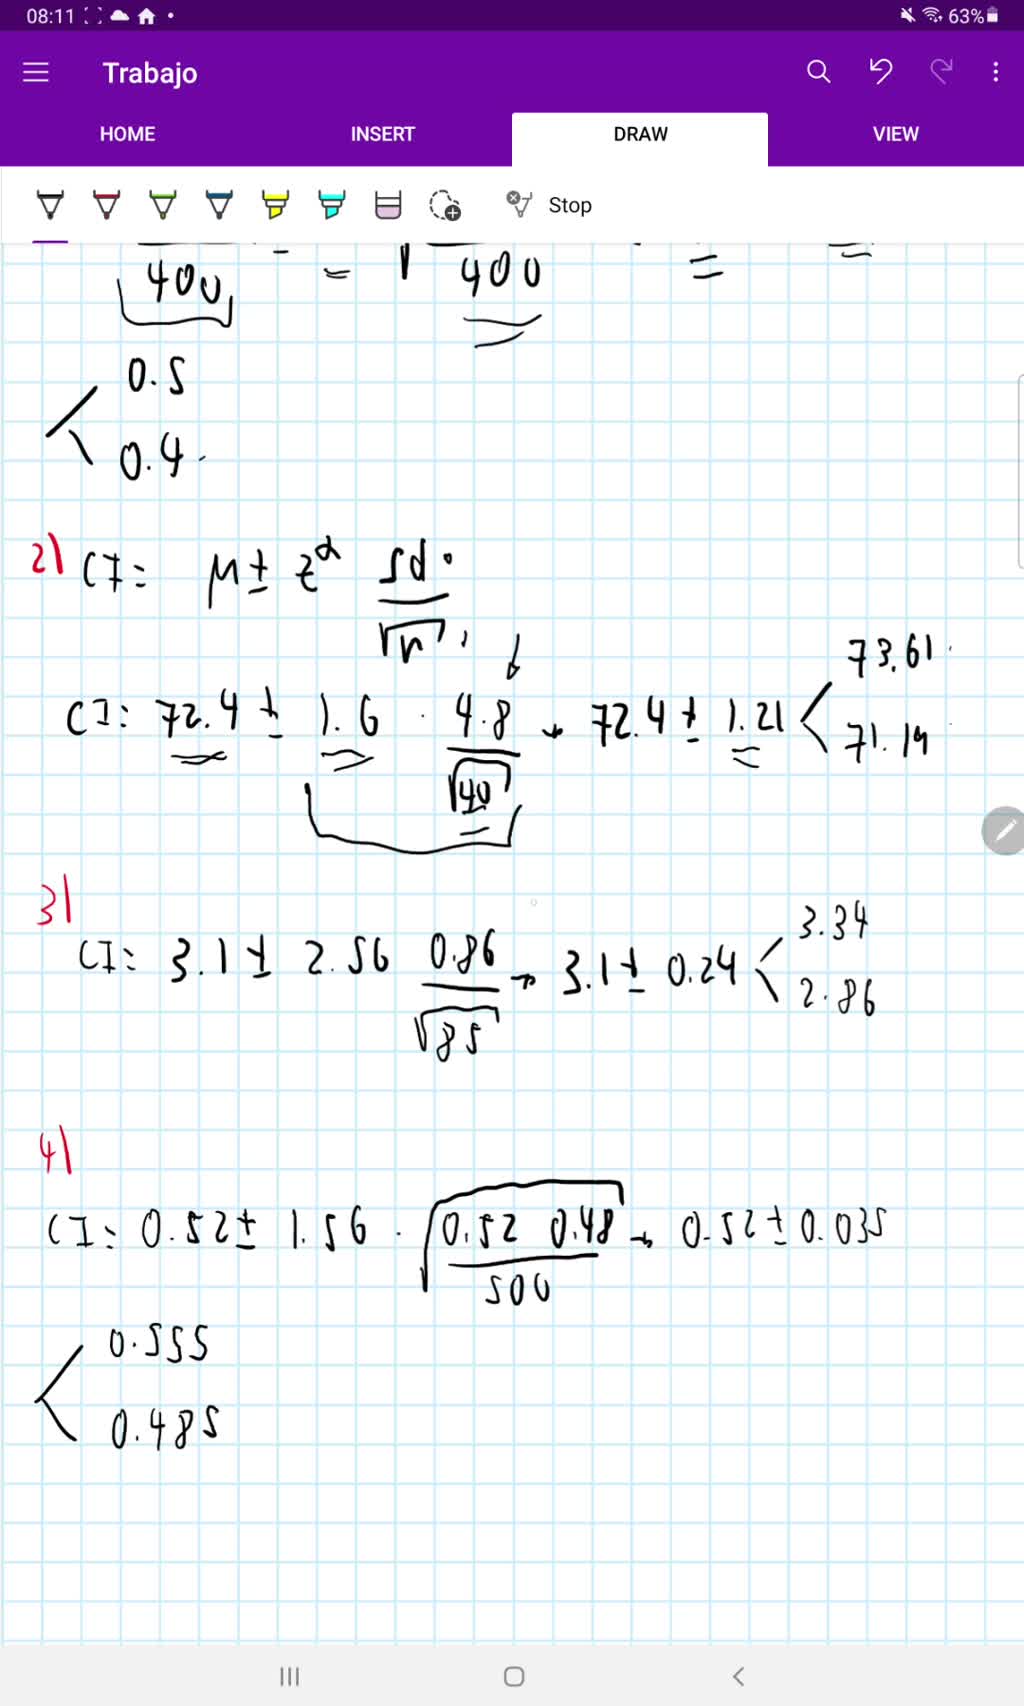 08:11 63%
Trabajo
HOME INSERT DRAW VIEW
Stop
400 = √400 =
0.5
0.4.
2) CI= μ ± z^α sd.
√n
CI: 72.4 ± 1.6 · 4.8 → 72.4 ± 1.21 < 73.61
√40 71.19
3)
CI: 3.1 ± 2.56 0.86 → 3.1 ± 0.24 < 3.34
√85 2.86
4)
CI: 0.52 ± 1.56 · √0.52 0.48 → 0.52 ± 0.035
500
0.555
0.485